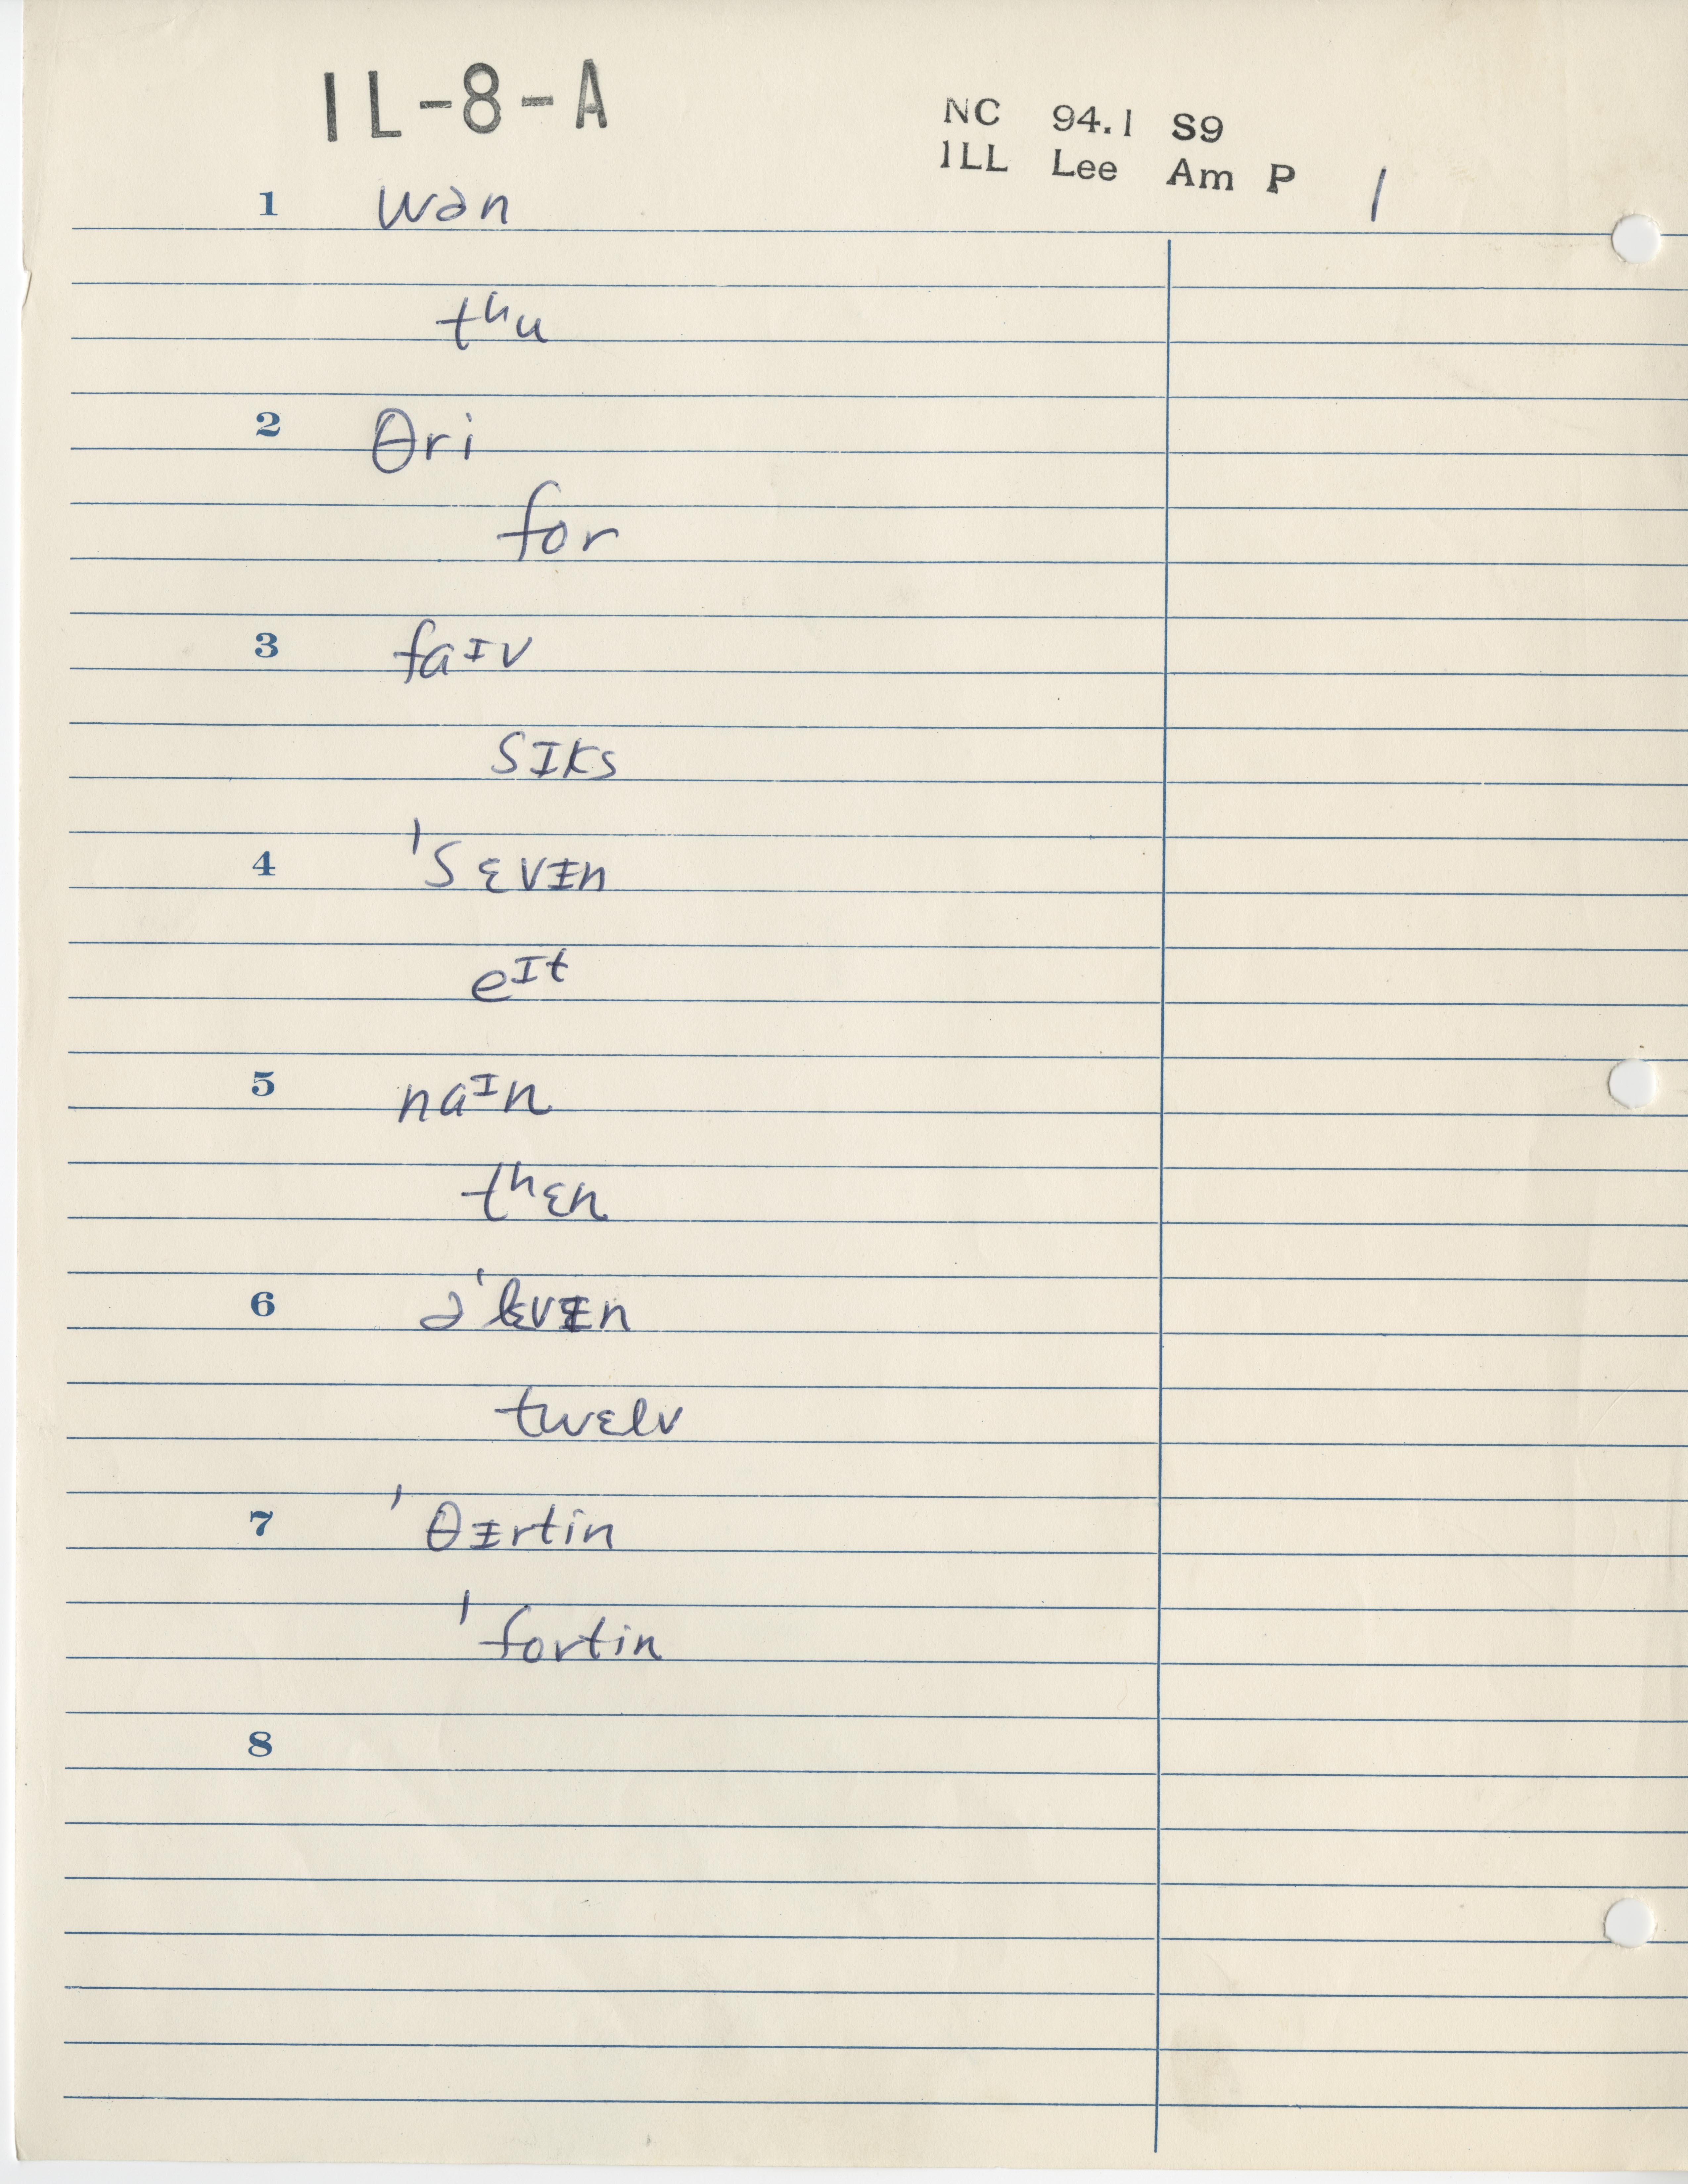 IL-8-A
NC 94.1 S9
ILL Lee Am P 1
1 wən
tʰu
2 θri
for
3 faᴵv
sɪks
4 ˈsɛvᵻn
eᴵt
5 naᴵn
tʰɛn
6 əˈlɛvᵻn
twɛlv
7 ˈθᵻrtin
ˈfortin
8